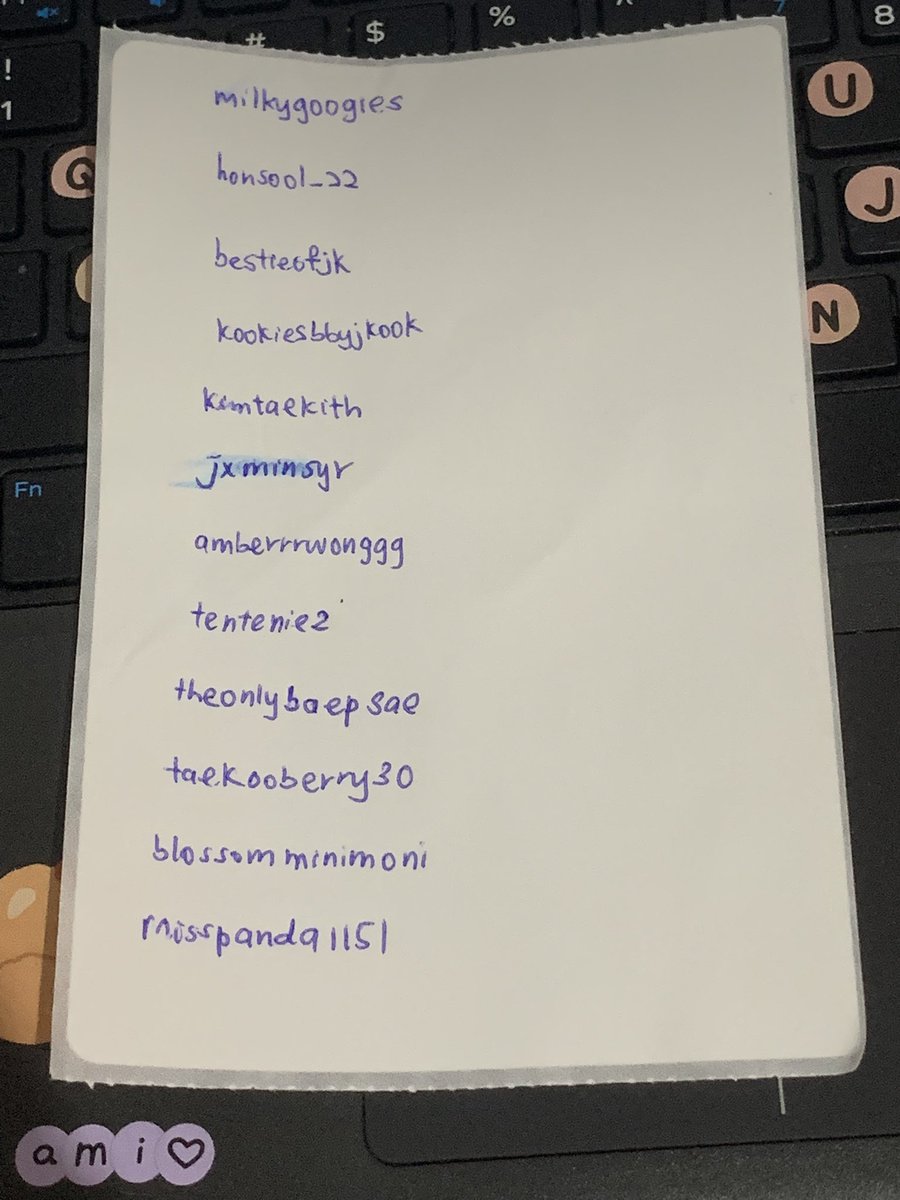 # $ % ^ 7 8
! 1
U
Q
J
N
Fn
milkygoogies
honsool_22
bestieofjk
kookiesbbyjkook
kimtaekith
jxminsyr
amberrrwonggg
tentenie2
theonlybaepsae
taekooberry30
blossomminimoni
misspanda1151
ami